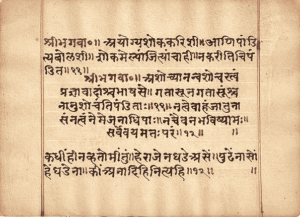 श्रीभगवा०॥ अयोग्यशोककरिशी॥ आणिपांडि
त्यबोलशी॥ शोकमेल्याजित्यांचाही॥ नकरीतिपंडि
त॥११॥
श्रीभगवा०॥ अशोच्यानन्वशोचस्त्वं
प्रज्ञावादांश्चभाषसे॥ गतासूनगतासूंश्च
नानुशोचंतिपंडिताः॥११॥ नत्वेवाहंजातुना
संनत्वंनेमेजनाधिपाः॥ नचैवनभविष्यामः
सर्वेवयमतः परं॥१२॥
कधींहीनव्हतोमीतूं॥ हेराजेनघडेअसें॥ पुढेंनासों
हेंघडेना॥ कीं अनादिहिनित्यहि॥१२॥